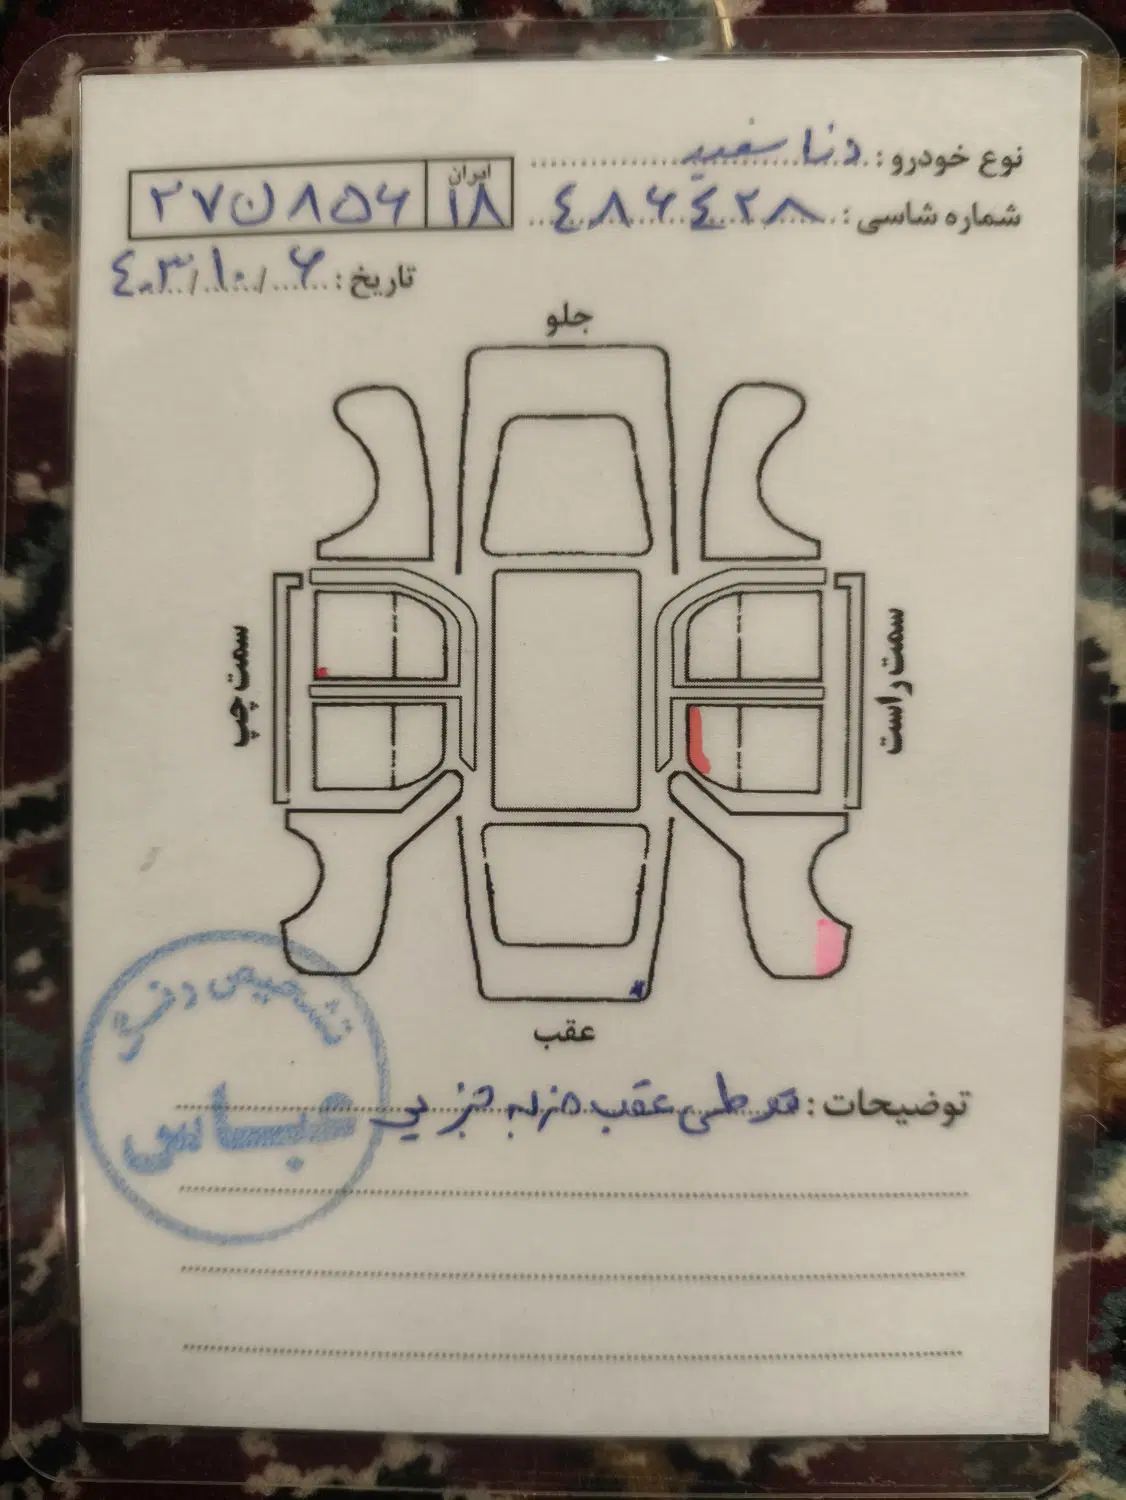 نوع خودرو: دنا سفید
شماره شاسی: ۴۸۶۴۲۸
ایران
۲۷ن۸۵۶ ۱۸
تاریخ: ۴۰۳/۱۰/۶
جلو
سمت چپ
سمت راست
عقب
توضیحات: قوطی عقب ضربه جزیی
تشخیص رنگ
عباس